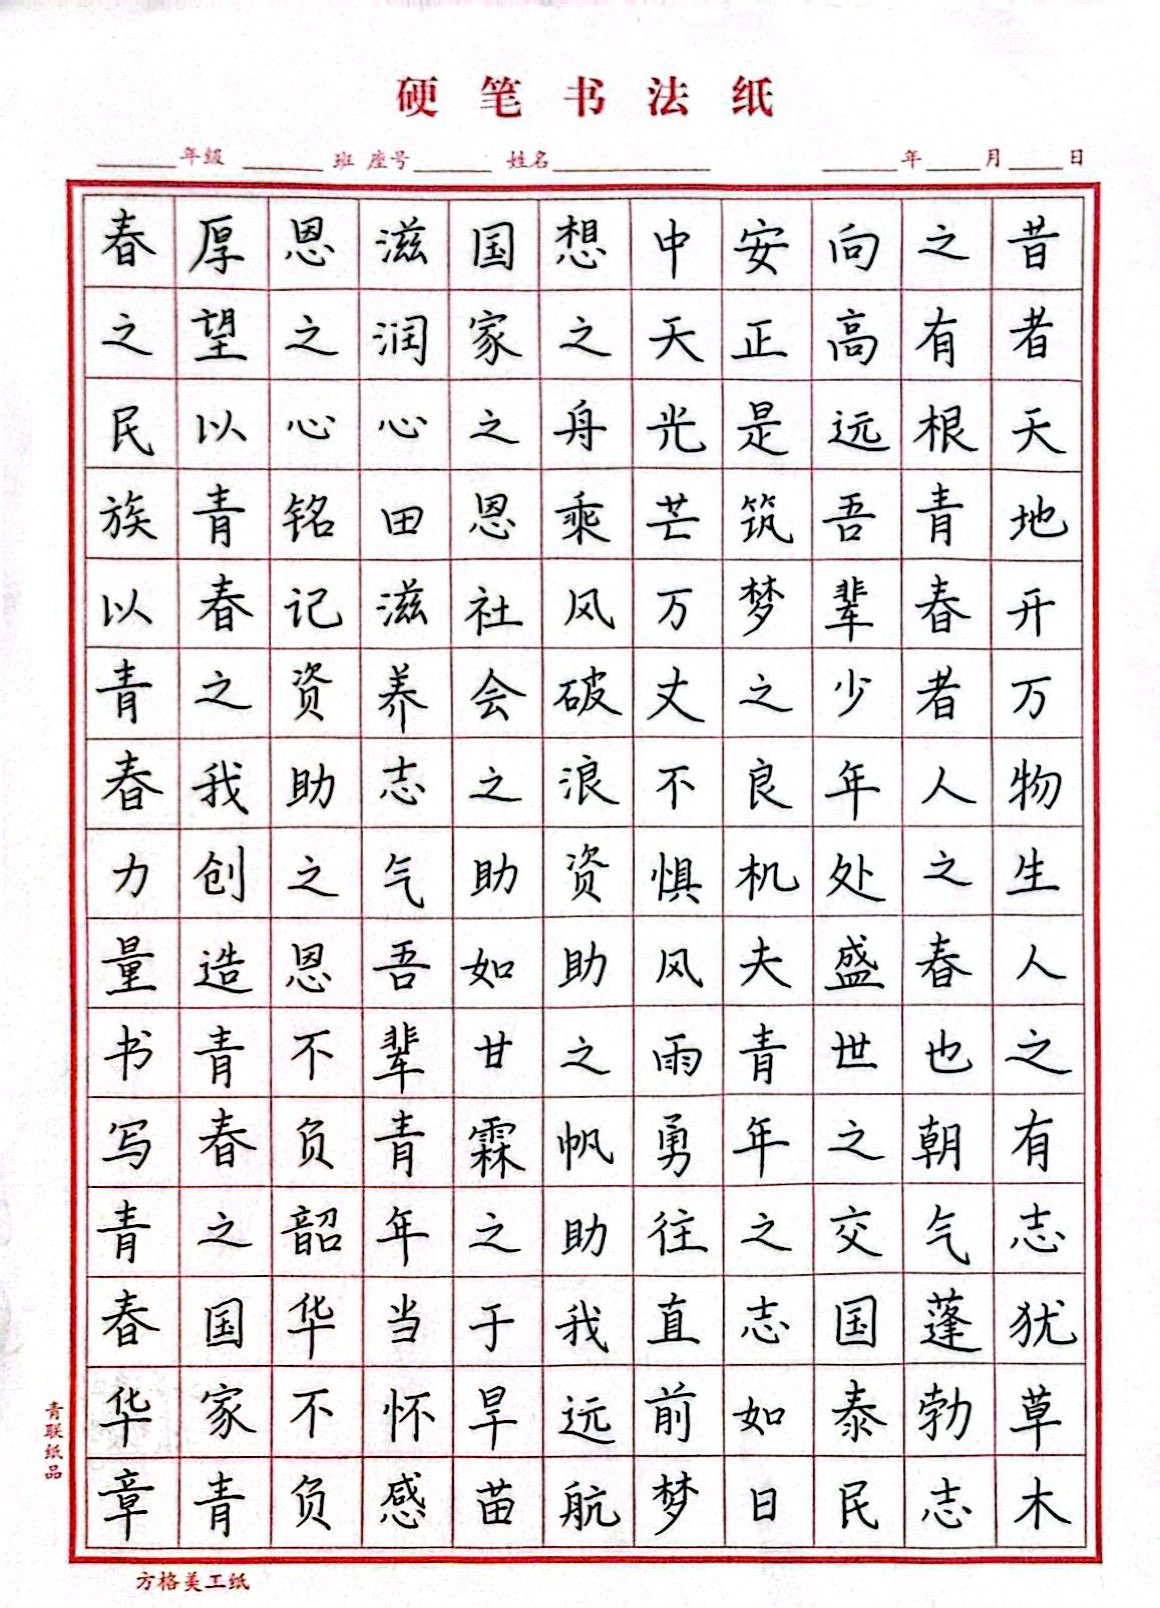 硬笔书法纸
年级 班 座号 姓名 年 月 日
昔者天地开万物生人之有志犹草木
之有根青春者人之春也朝气蓬勃志
向高远吾辈少年处盛世之交国泰民
安正是筑梦之良机夫青年之志如日
中天光芒万丈不惧风雨勇往直前梦
想之舟乘风破浪资助之帆助我远航
国家之恩社会之助如甘霖之于旱苗
滋润心田滋养志气吾辈青年当怀感
恩之心铭记资助之恩不负韶华不负
厚望以青春之我创造青春之国家青
春之民族以青春力量书写青春华章
青联纸品
方格美工纸